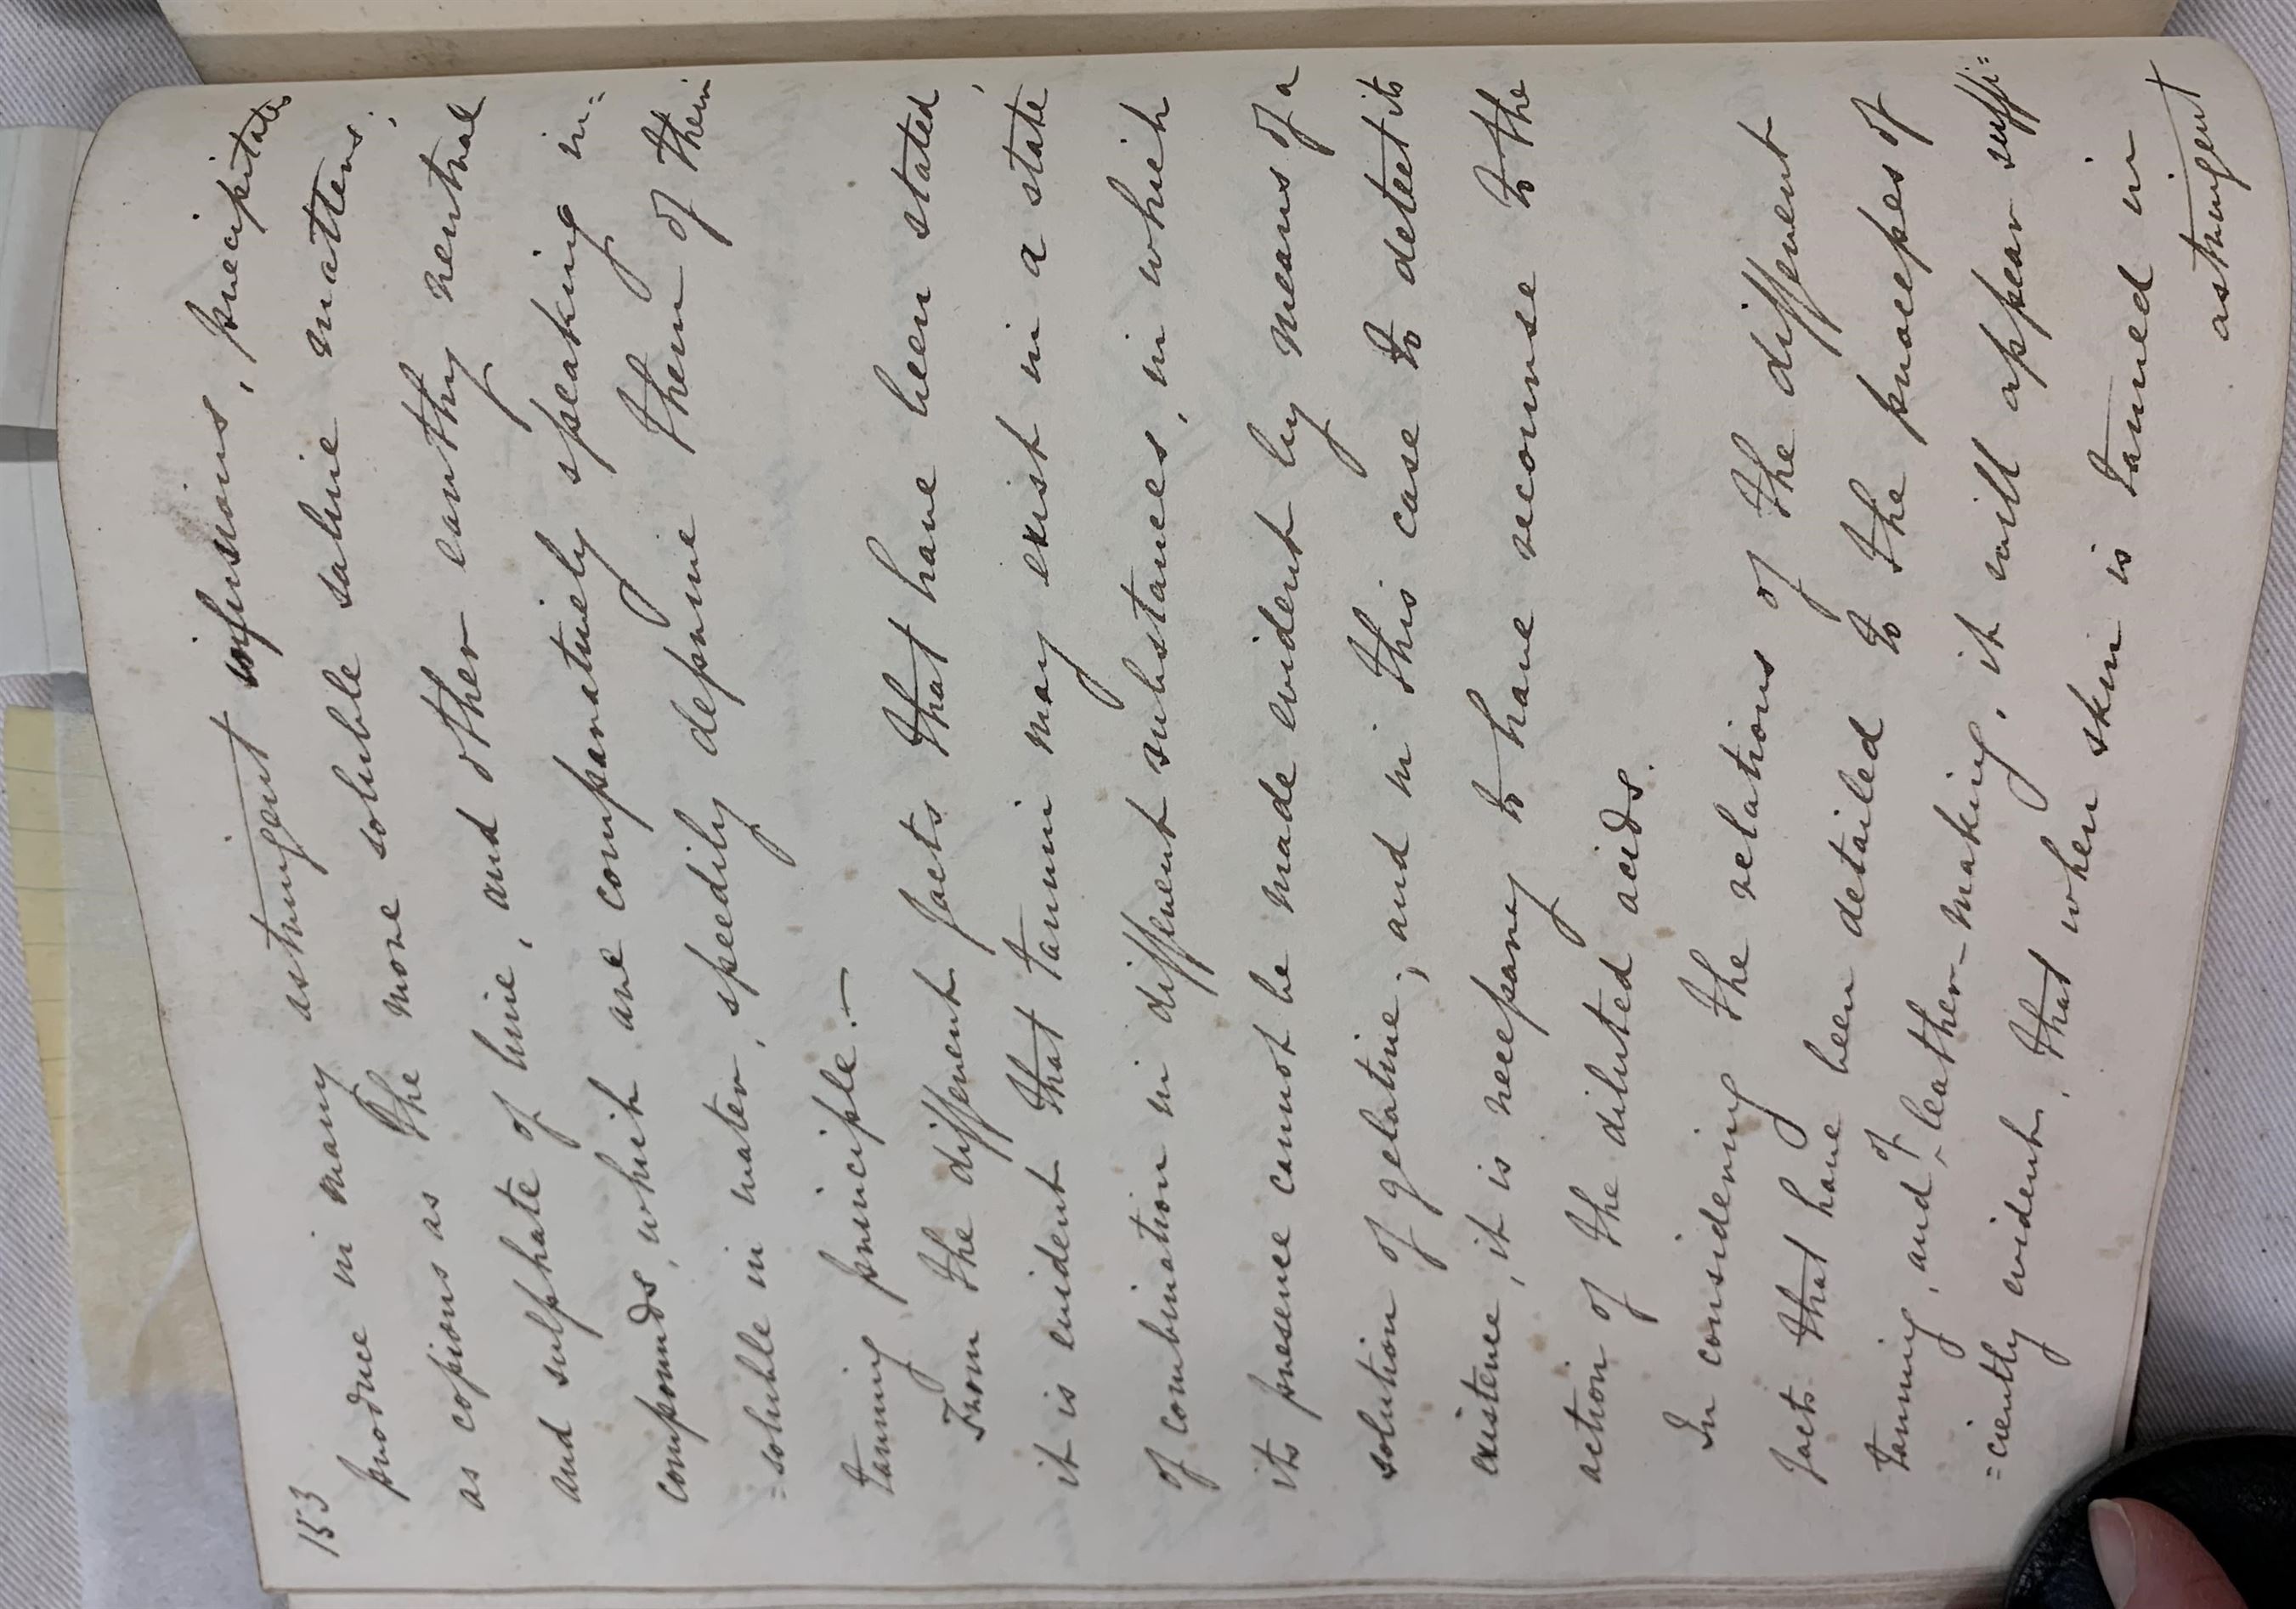 153
produce in many astringent infusions, precipitates
as copious as the more soluble saline matters;
and sulphate of lime, and other earthy neutral
compounds, which are comparatively speaking in=
=soluble in water, speedily deprive them of their
tanning principle.—
From the different facts that have been stated,
it is evident that tannin may exist in a state
of combination in different substances, in which
its presence cannot be made evident by means of a
solution of gelatine; and in this case to detect its
existence, it is necessary to have recourse to the
action of the diluted acids.
In considering the relations of the different
facts that have been detailed to the processes of
tanning, and of leather-making, it will appear suffi=
=ciently evident, that when skin is tanned in
astringent